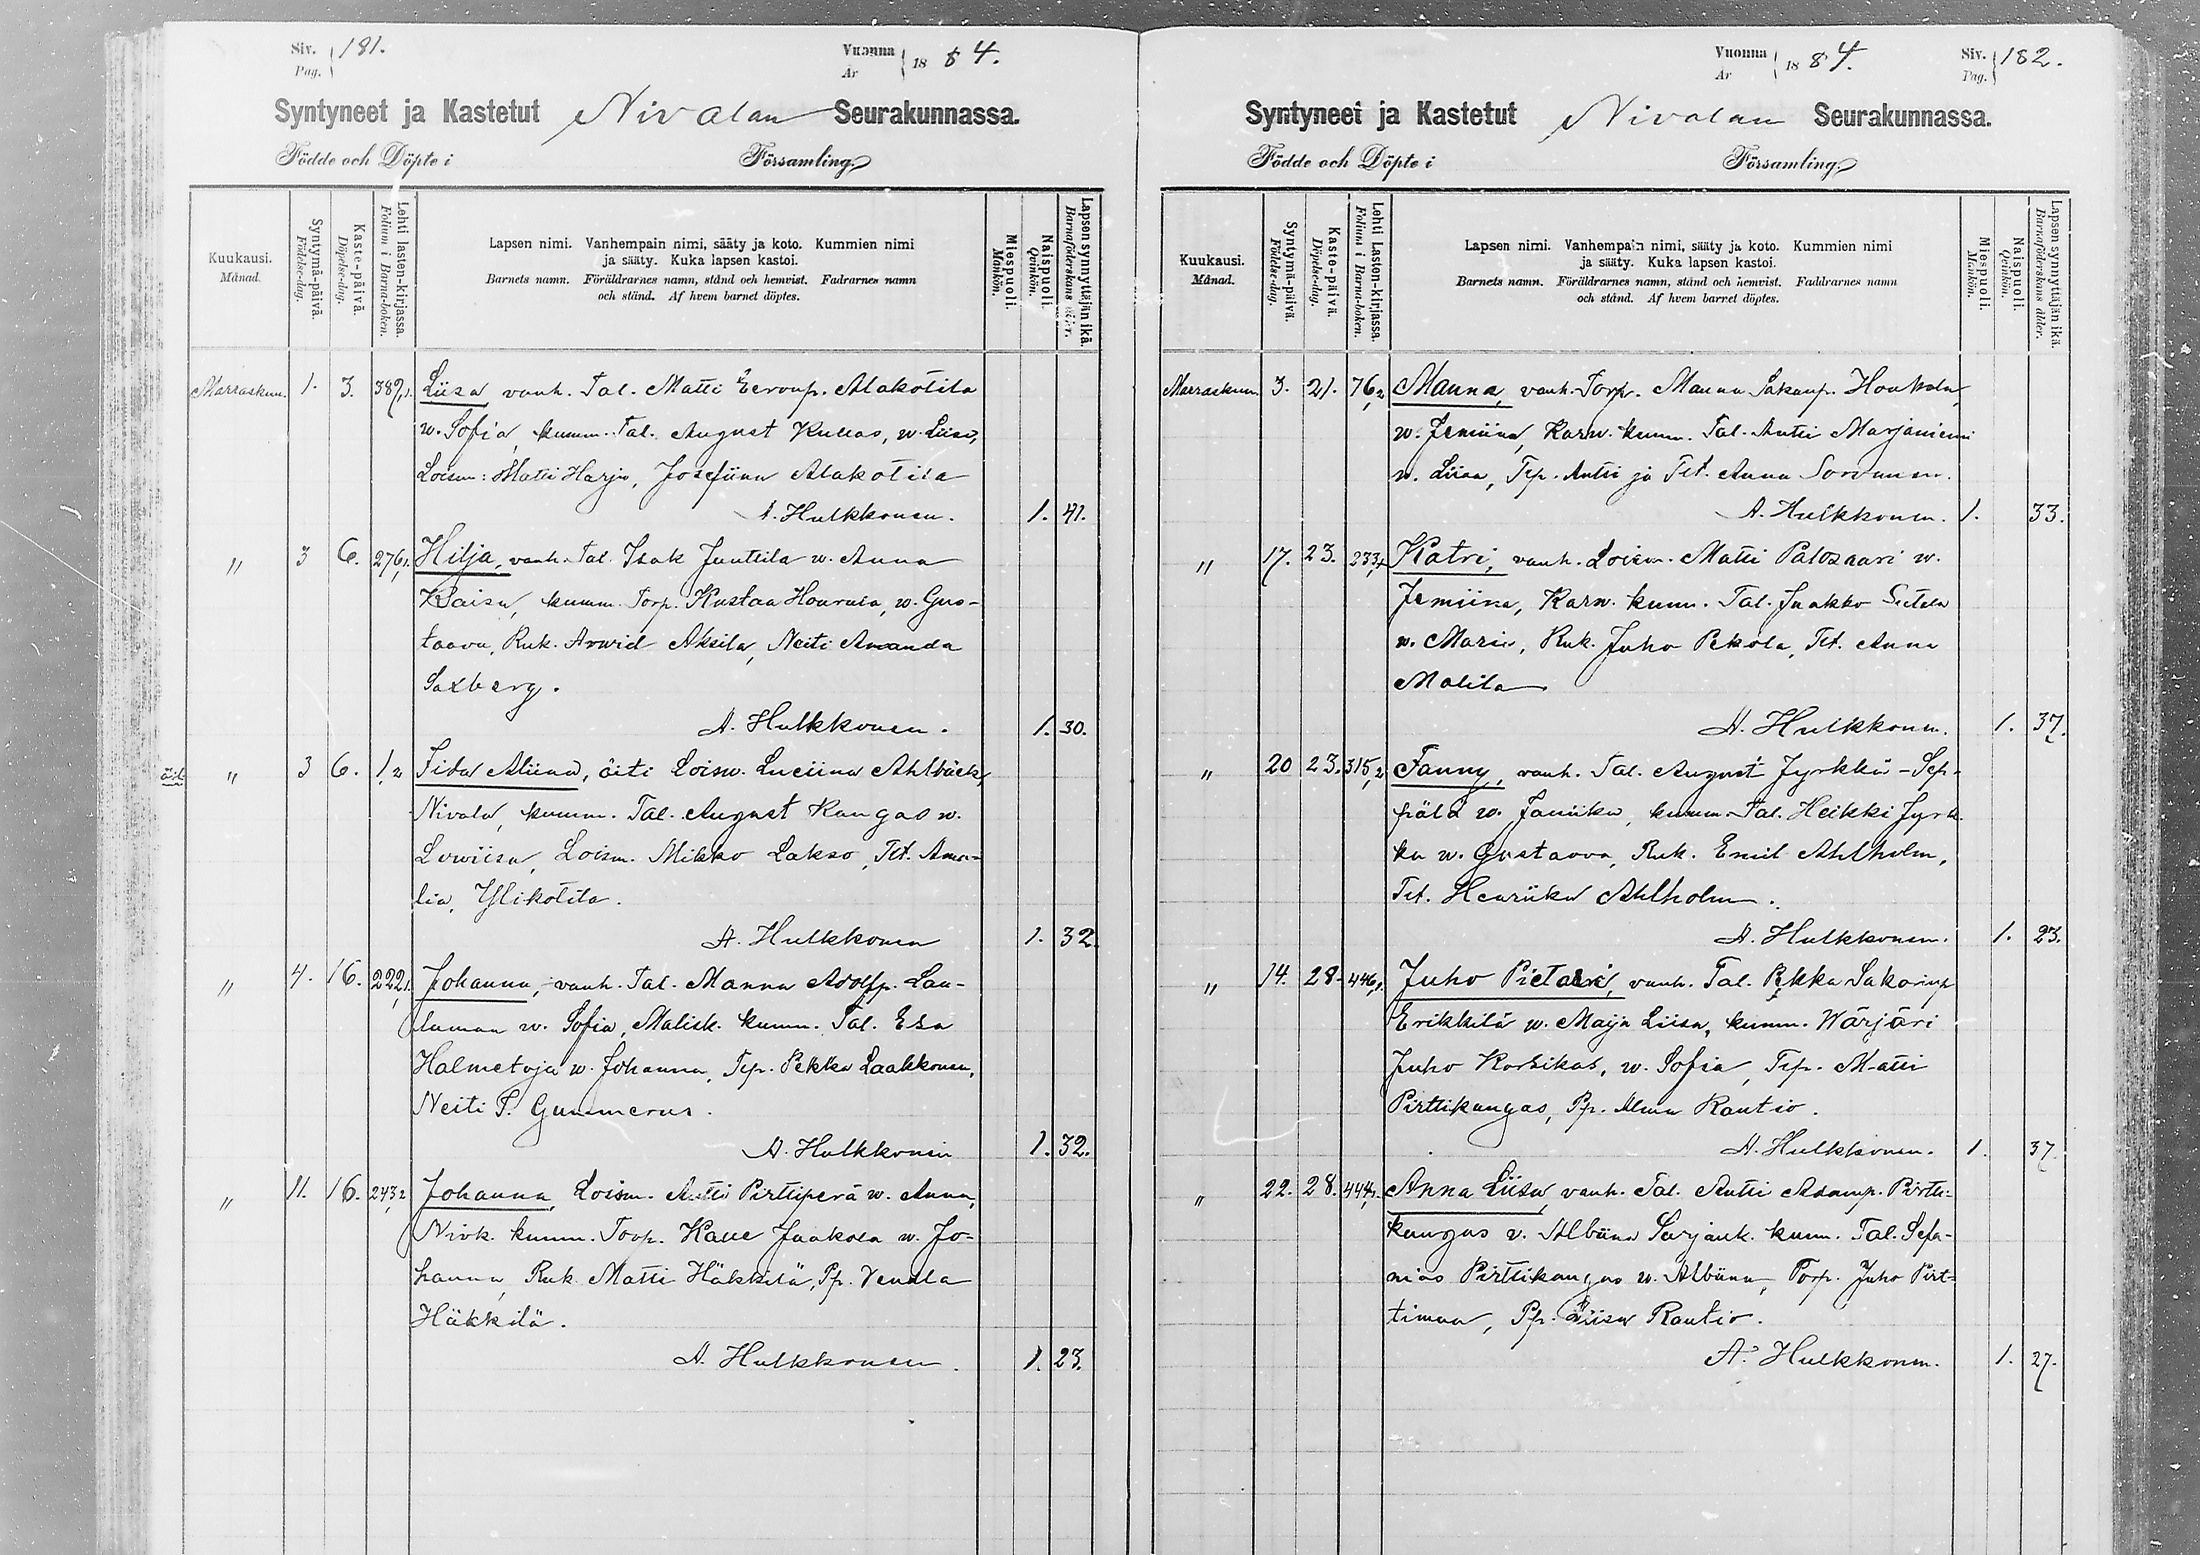 Siv. 181.
Pag.
Vuonna 1884.
År
Syntyneet ja Kastetut Nivalan Seurakunnassa.
Födde och Döpte i Församling.
Kuukausi.
Månad.
Syntymä-päivä.
Födelse-dag.
Kaste-päivä.
Döpelse-dag.
Lehti lasten-kirjassa.
Folium i Barna-boken.
Lapsen nimi. Vanhempain nimi, sääty ja koto. Kummien nimi
ja sääty. Kuka lapsen kastoi.
Barnets namn. Föräldrarnes namn, stånd och hemvist. Fadrarnes namn
och stånd. Af hvem barnet döptes.
Miespuoli.
Mankön.
Naispuoli.
Qvinkön.
Lapsen synnyttäjän ikä.
Barnaföderskans
Marraskuu. 1. 3. 387,1. Liisa vanh. Tal. Matti Eeronp. Alakotila
w. Sofia, kumm. Tal. August Kukas, w. Liisa,
Loism: Matti Harju, Josefiina Alakotila
A. Hulkkonen. 1. 41.
" 3 6. 276,1. Hilja, vanh. Tal. Isak Junttila w. Anna
Kaisa, kumm. Torp. Kustaa w. Gus-
taava, Ruk. Arwid Aksila, Neiti Amanda
Saxberg.
A. Hulkkonen. 1. 30.
äit. " 3 6. 1,2 Fida Aliina, äiti Loisw. Luciina Ahlbäck,
Nivala, kumm. Tal. August Kangas w.
Lowiisa, Loism. Mikko Lakso, Tct. Ama-
lia Ylikotila.
A. Hulkkonen 1. 32.
" 4. 16. 222,1. Johanna, vanh. Tal. Manna Adolfp. Lau-
luman w. Sofia, Malisk. kumm. Tal. Esa
Halmetoja w. Johanna, Tcp. Pekka Laakkonen,
Neiti S. Gummerus.
A. Hulkkonen 1. 32.
" 11. 16. 243,2 Johanna, Loism. Antti Pirttiperä w. Anna,
Nivk. kumm. Torp. Kalle Jaakola w. Jo-
hanna, Ruk. Matti Häkkilä, Pp. Vendla
Häkkilä.
A. Hulkkonen. 1. 23.
Vuonna 1884.
År
Siv. 182.
Pag.
Syntyneet ja Kastetut Nivalan Seurakunnassa.
Födde och Döpte i Församling.
Kuukausi.
Månad.
Syntymä-päivä.
Födelse-dag.
Kaste-päivä.
Döpelse-dag.
Lehti Lasten-kirjassa.
Folium i Barna-boken.
Lapsen nimi. Vanhempain nimi, sääty ja koto. Kummien nimi
ja sääty. Kuka lapsen kastoi.
Barnets namn. Föräldrarnes namn, stånd och hemvist. Faddrarnes namn
och stånd. Af hvem barnet döptes.
Miespuoli.
Mankön.
Naispuoli.
Qvinkön.
Lapsen synnyttäjän ikä.
Barnaföderskans ålder.
Marraskuu. 3. 21. 76,2 Manna, vanh. Torp. Manna Sakarip. Honkala
w. Jemiina, Karw. kumm. Tal. Antti Marjaniemi
w. Liisa, Tcp. Antti ja Tct. Anna Sorvanen.
A. Hulkkonen. 1. 33.
" 17. 23. 233, Katri, vanh. Loism. Matti Palosaari w.
Jemiina, Karw. kumm. Tal. Jaakko Sutela
w. Maria, Ruk. Juho Pekola, Tct. Anna
Malila
A. Hulkkonen. 1. 37.
" 20 23. 315,2 Fanny, vanh. Tal. August Jyrkkä-Sep-
pälä w. Janiika, kumm. Tal. Heikki Jyrk-
kä w. Gustaava, Ruk. Emil Ahlholm,
Tct. Henriika Ahlholm.
A. Hulkkonen. 1. 23.
" 14. 28. 446,1. Juho Pietari, vanh. Tal. Pekka Sakarinp
Erikkilä w. Maija Liisa, kumm. Wärjäri
Juho Korsikas, w. Sofia, Tcp. Matti
Pirttikangas, Pp. Alma Rautio.
A. Hulkkonen. 1. 37.
" 22. 28. 444,1. Anna Liisa, vanh. Tal. Antti Adamp. Pirtti-
kangas v. Albiina Sarjank. kumm. Tal. Sefa-
nias Pirttikangas w. Albiina, Torp. Juho Pirt-
timaa, Pp. Liisa Rautio.
A. Hulkkonen. 1. 27.